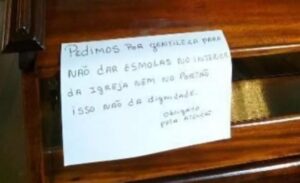 PEDIMOS POR GENTILEZA PARA
NÃO DAR ESMOLAS NO INTERIOR
DA IGREJA NEM NO PORTÃO
ISSO NÃO DA DIGNIDADE.
OBRIGADO
PELA ATENÇÃO